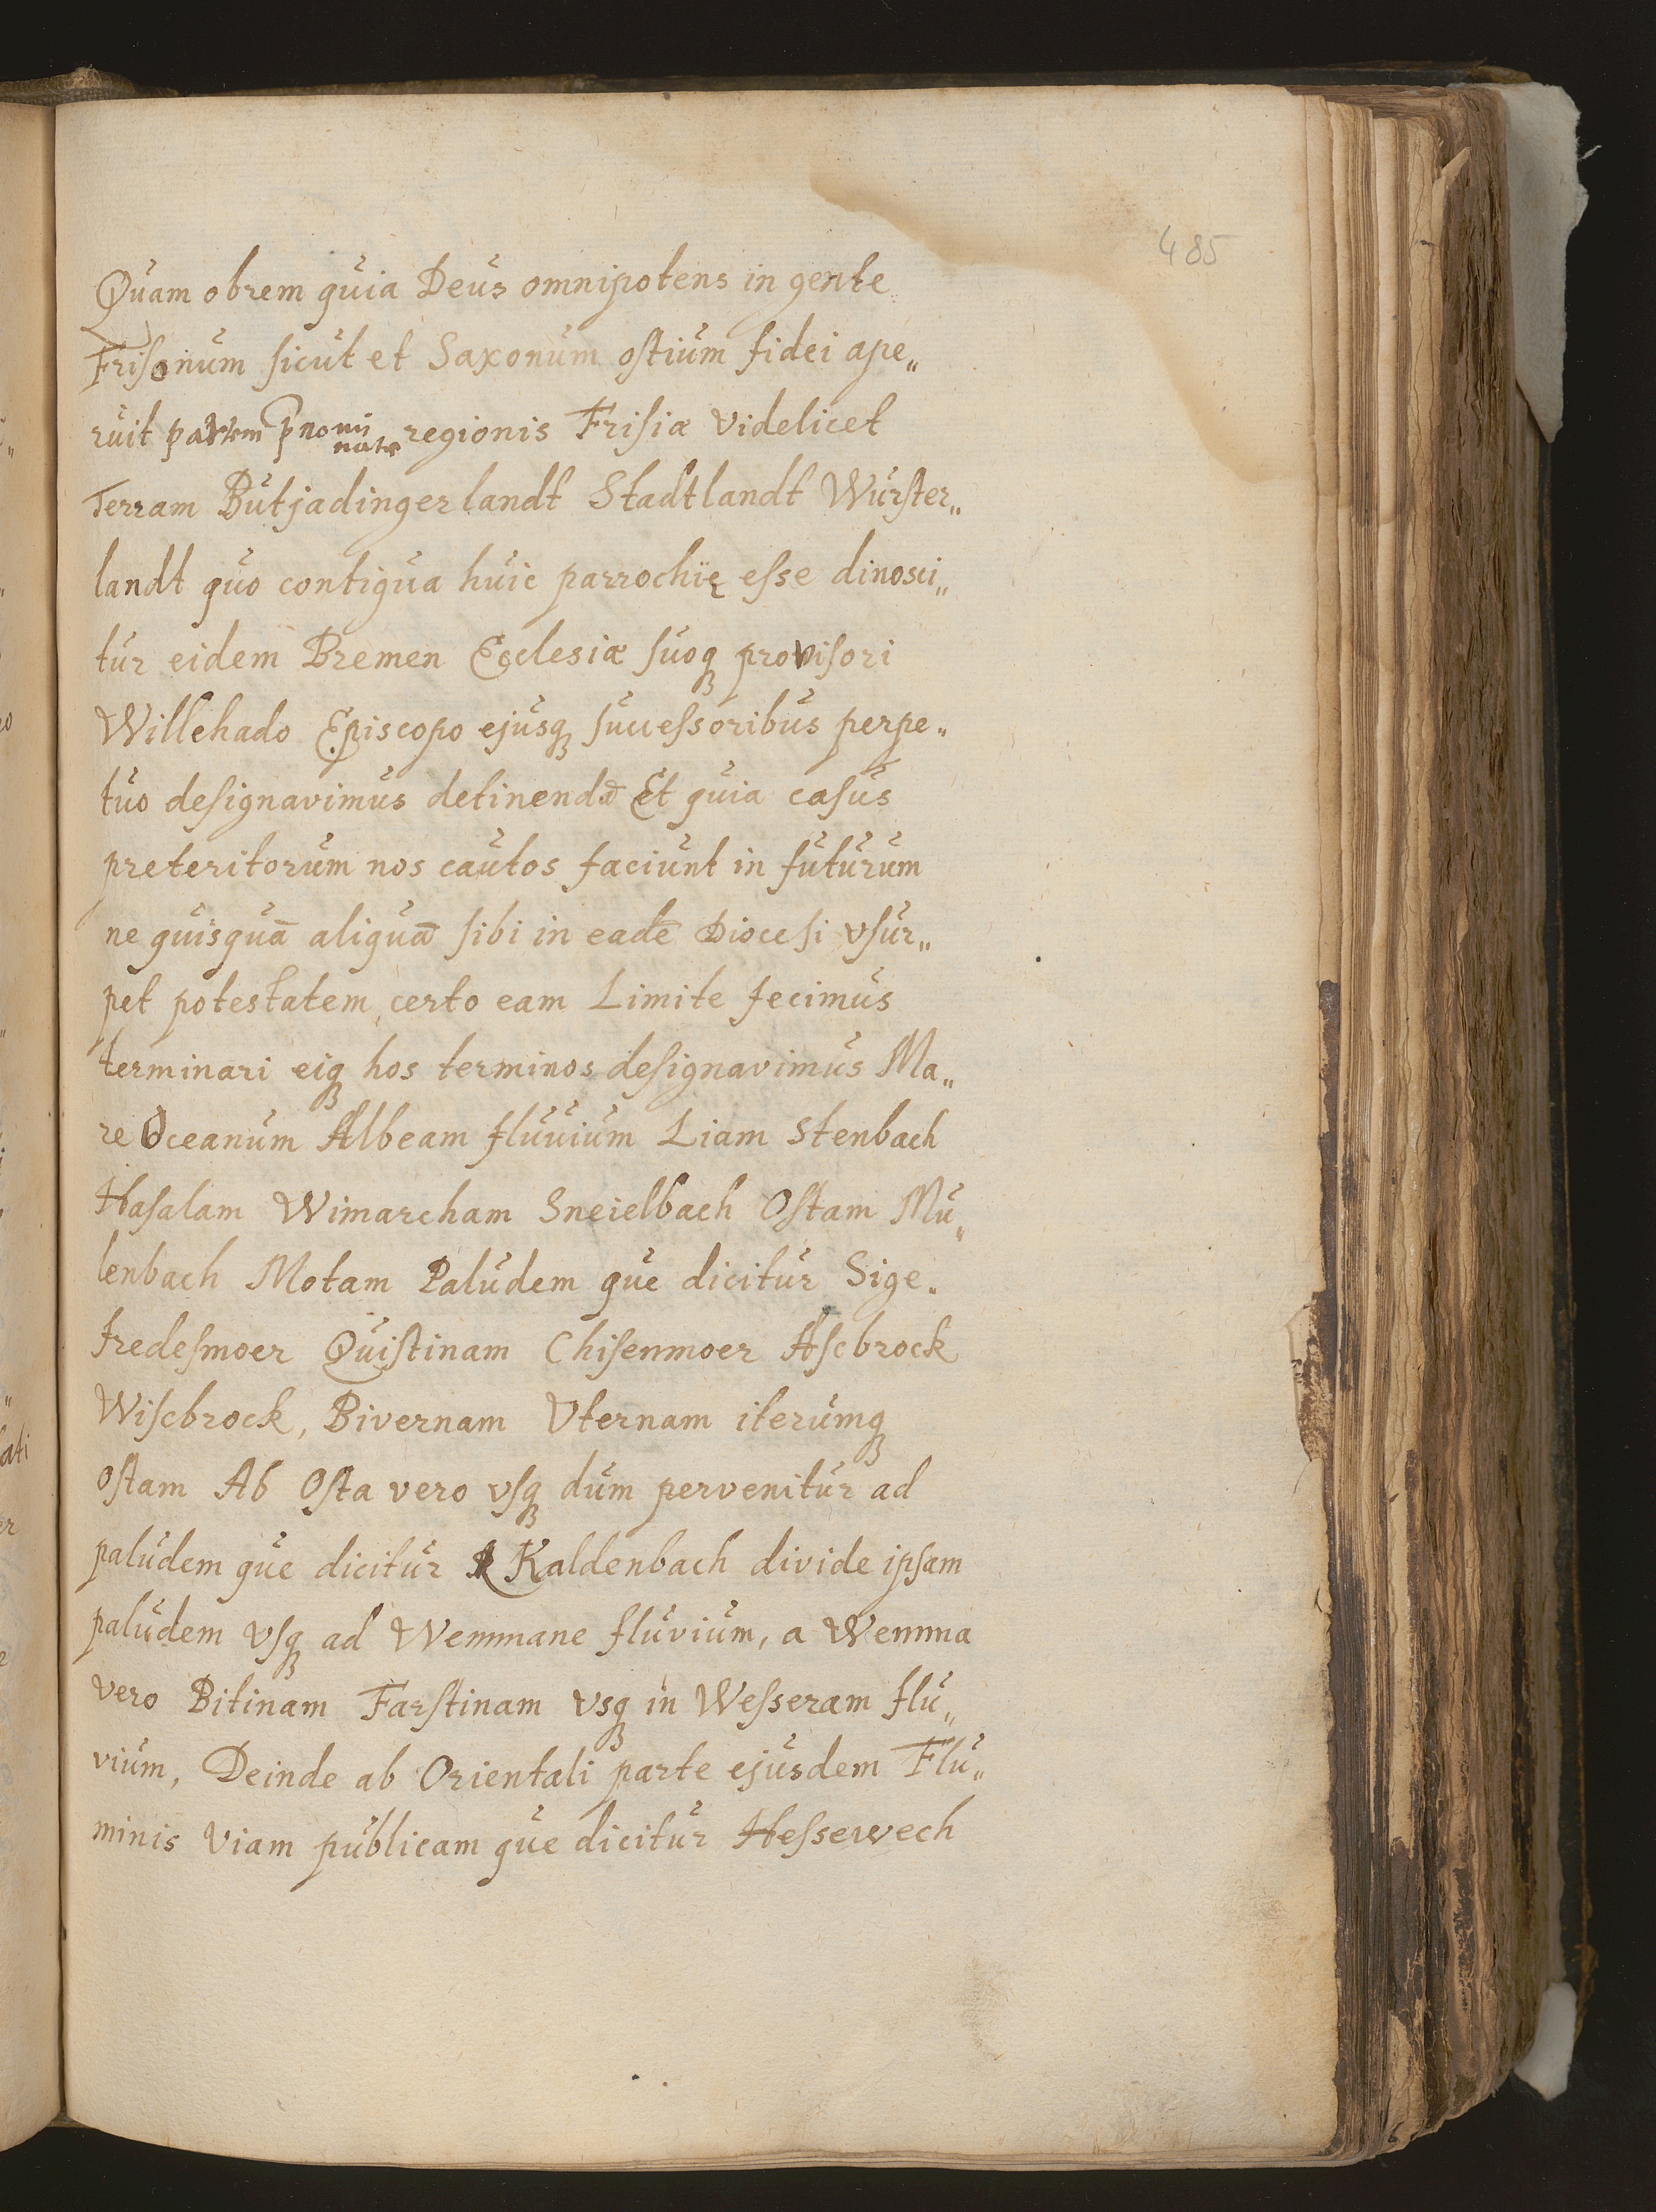 485
Quam obrem quia Deus omnipotens in gente
Frisonum sicut et Saxonum ostium fidei ape„
ruit partem p̄nominatę regionis Frisiæ videlicet
Terram Butjadingerlandt Stadtlandt Wurster„
landt quo contigua huic parrochię esse dinosci„
tur eidem Bremen Ecclesiæ suoqꝫ provisori
Willehado Episcopo ejusqꝫ successoribus perpe„
tuo designavimus detinendā Et quia casus
preteritorum nos cautos faciunt in futurum
ne quisquā aliquā sibi in eadē Diocesi vsur„
pet potestatem, certo eam Limite fecimus
terminari eiqꝫ hos terminos designavimus Ma„
re Oceanum Albeam fluuium Liam Stenbach
Hasalam Wimarcham Sneielbach Ostam Mu„
lenbach Motam Paludem que dicitur Sige„
fredesmoer Quistinam Chisenmoer Ascbrock
Wiscbrock, Bivernam Vternam iterumqꝫ
ostam Ab Osta vero vsqꝫ dum pervenitur ad
paludem que dicitur Kaldenbach divide ipsam
paludem vsqꝫ ad Wemmane fluvium, a Wemma
vero Bitinam Farstinam vsqꝫ in Wesseram flu„
vium, Deinde ab Orientali parte ejusdem Flu„
minis viam publicam que dicitur Hessewech